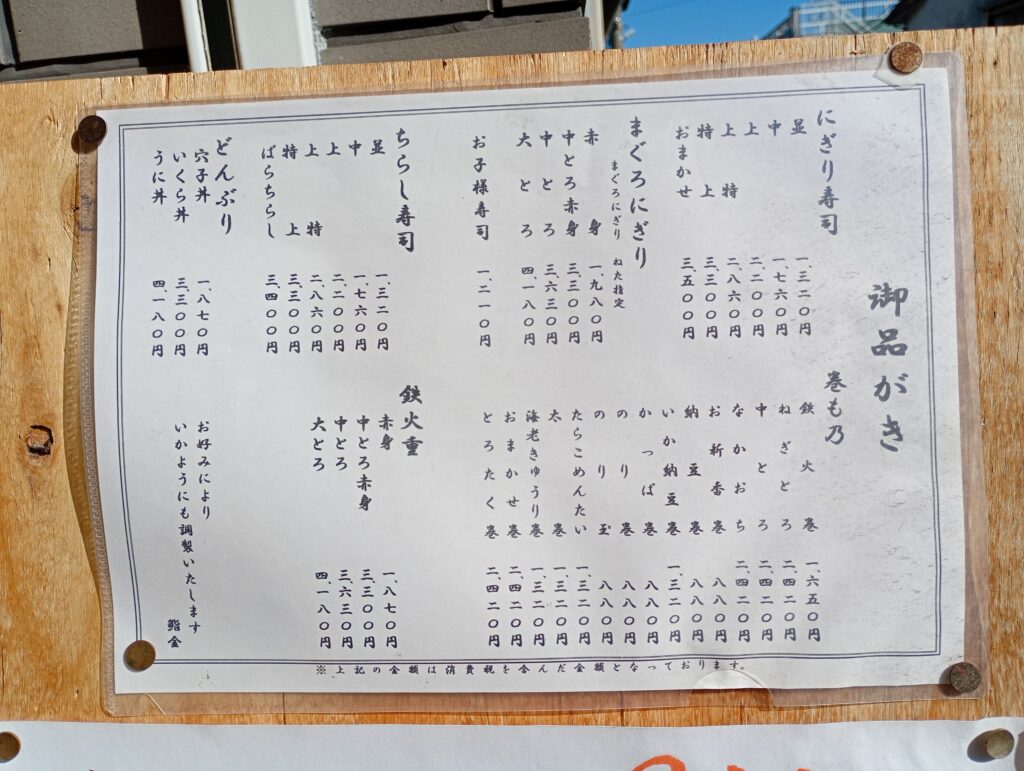 御品がき
にぎり寿司
並 一、三二〇円
中 一、七六〇円
上 二、二〇〇円
上特 二、八六〇円
特上 三、三〇〇円
おまかせ 三、五〇〇円
まぐろにぎり
まぐろにぎり ねた指定
赤身 一、九八〇円
中とろ赤身 三、三〇〇円
中とろ 三、六三〇円
大とろ 四、一八〇円
お子様寿司 一、二一〇円
ちらし寿司
並 一、三二〇円
中 一、七六〇円
上 二、二〇〇円
上特 二、八六〇円
特上 三、三〇〇円
ばらちらし 三、四〇〇円
どんぶり
穴子丼 一、八七〇円
いくら丼 三、三〇〇円
うに丼 四、一八〇円
巻も乃
鉄火巻 一、六五〇円
ねぎとろ 二、四二〇円
中とろ 二、四二〇円
なかおち 二、四二〇円
お新香巻 八八〇円
納豆巻 八八〇円
いか納豆巻 一、三二〇円
かっぱ巻 八八〇円
のり巻 八八〇円
のり玉 八八〇円
たらこめんたい 一、三二〇円
太巻 一、三二〇円
海老きゅうり巻 一、三二〇円
おまかせ巻 二、四二〇円
とろたく巻 二、四二〇円
鉄火重
赤身 一、八七〇円
中とろ赤身 三、三〇〇円
中とろ 三、六三〇円
大とろ 四、一八〇円
お好みにより
いかようにも調製いたします
鮨金
※上記の金額は消費税を含んだ金額となっております。